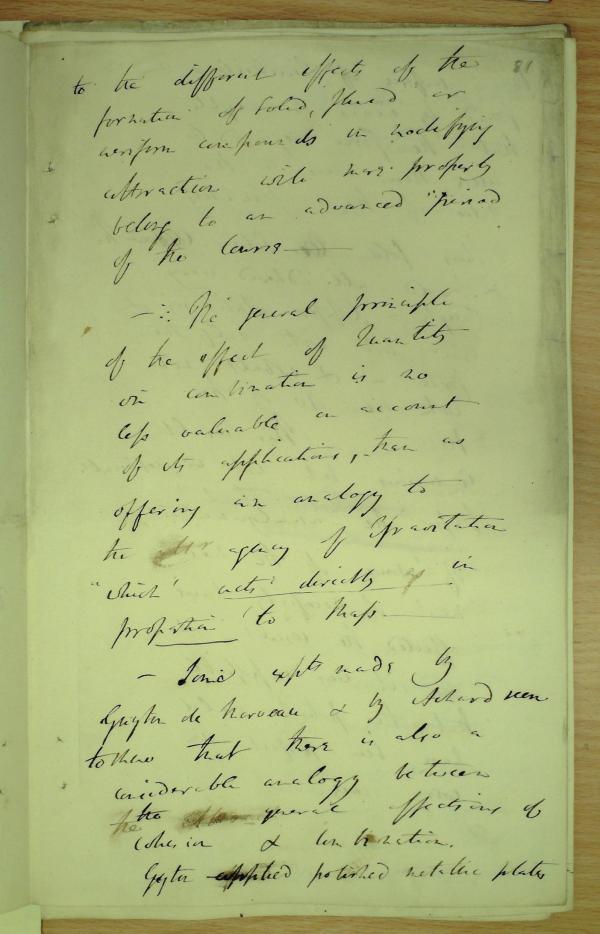 81
to the different effects of the
formation of solid, fluid or
aeriform compounds in modifying
attraction will more properly
belong to an advanced "period
of the Course —
— ∴ The general principle
of the effect of Quantity
on combination is no
less valuable on account
of its applications, than as
offering an analogy to
the agency of Gravitation
"which' acts' directly in
proportion to Mass. —
— Some expts made by
Guyton de Morveau & by Achard seem
to shew that there is also a
considerable analogy between
the general effections of
cohesion & combination.
Guyton applied polished metallic plates